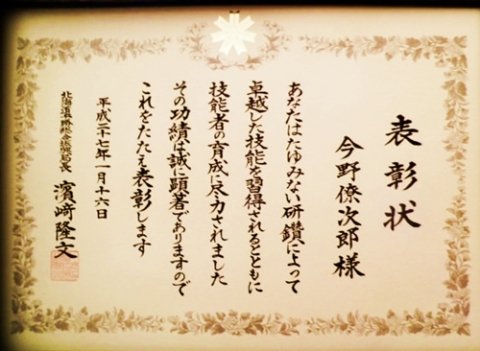 表彰状
今野僚次郎様
あなたはたゆみない研鑽によって
卓越した技能を習得されるとともに
技能者の育成に尽力されました
その功績は誠に顕著でありますので
これをたたえ表彰します
平成二十七年一月十六日
北海道 総合振興局長 濱崎隆文